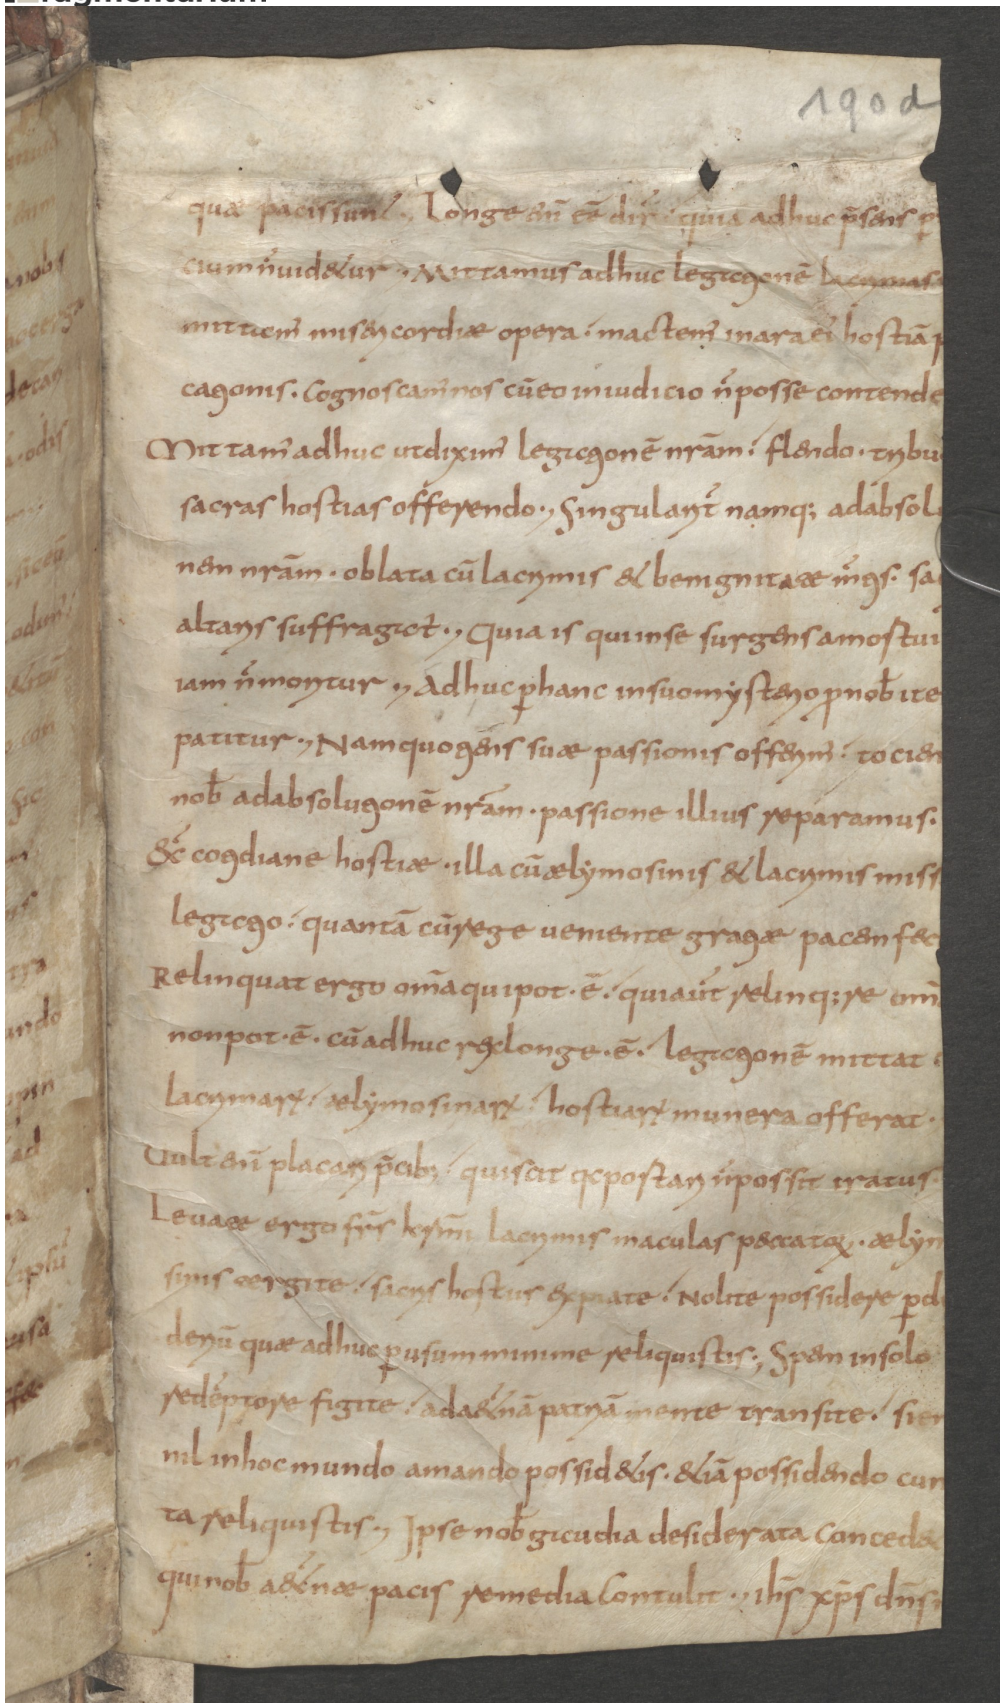 190d
quae pacis sunt ., Longe eni̅ e̅e̅ dir̅ ; quia adhuc p̅sens p
cium n̅ uidetur ., Mittamus adhuc legatione̅ lacrimas
mittam̅ misericordiae opera ; mactem̅ in ara ei hostia̅ p
cationis . Cognoscam̅ nos cu̅ eo in iudicio n̅ posse contende
Mittam̅ adhuc ut dixim̅ legatione̅ nr̅am ; flendo . tribu
sacras hostias offerendo ., Singularit̅ namq; ad absol
nem nr̅am . oblata cu̅ lacrimis & benignitate m̅tis . sa
altaris suffragat̅ ., Quia is qui in se surgens a mortui
iam n̅ moritur ., Adhuc p̲ hanc in suo mysterio p̲ nob̅ ite
patitur ., Nam quotiens suae passionis offerim̅ ; tocien
nob̅ ad absolutione̅ nr̅am . passione illius reparamus .
cotidiane hostiae . illa cu̅ aelymosinis & lacrimis miss
legatio ; quanta̅ cu̅ rege ueniente gratiae pacem fac
Relinquat ergo om̅a qui pot . e̅ ; quia ut̅ relinq;re om̅
non pot . e̅ . cu̅ adhuc rex longe . e̅ . legatione̅ mittat
lacrimarꝝ ; aelymosinarꝝ ; hostiarꝝ munera offerat .
Uult eni̅ placari p̅cib; ; qui scit qđ portari n̅ possit iratus .
Leuate ergo fr̅s kr̅mi lacrimis maculas peccatoꝝ . aelym
sinis tergite ; sacris hostiis expiate ; Nolite possidere p̲ d
deriu̅ quae adhuc p̲ usum minime reliquistis ; Spem in solo
rede̅ptore figite ; ad aet̅na̅ patria̅ mente transite ; si en
nil in hoc mundo amando possidetis . etia̅ possidendo cun
ta reliquistis ., Ipse nob̅ gaudia desiderata Concedat
qui nob̅ aet̅nae pacis remedia Contulit ., ih̅s xp̅s dn̅s